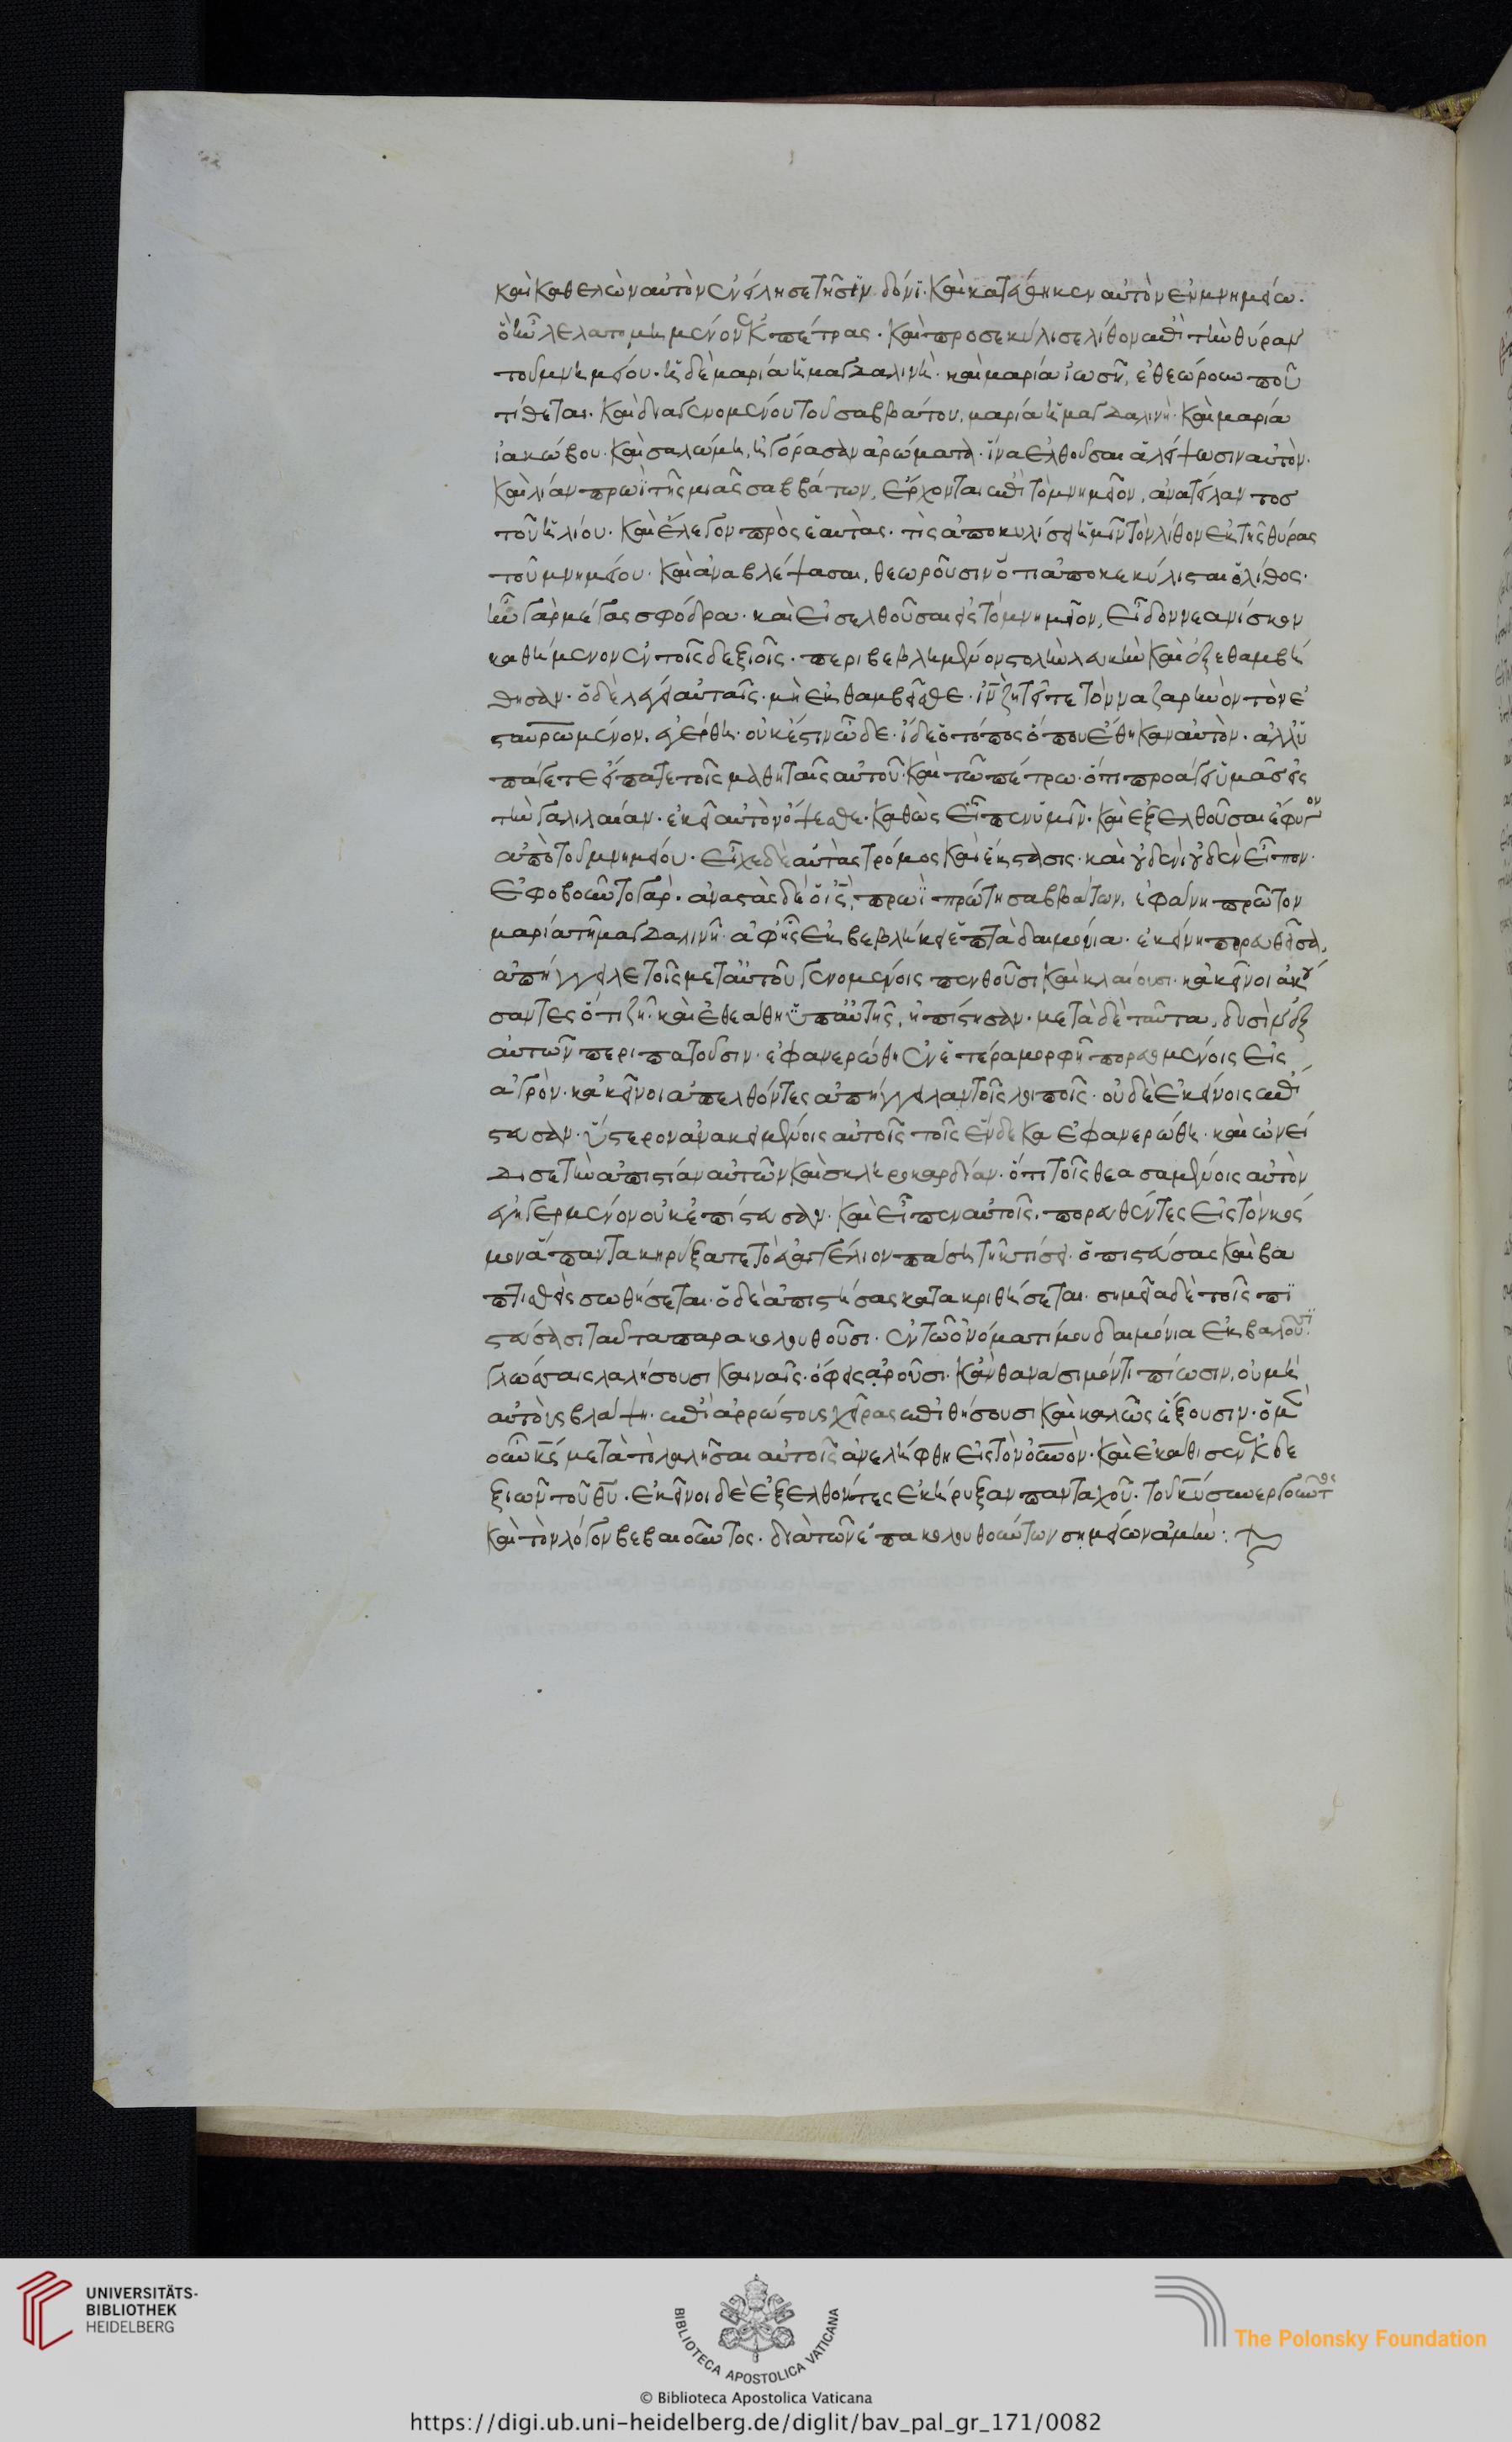 καὶ καθελὼν αὐτὸν ἐνείλησε τῆ σϊνδόνϊ· καὶ κατέθηκεν αὐτὸν ἐν μνημείω·
ὃ ἦν λελατομημένον ἐκ πέτρας· καὶ προσεκύλισε λίθον ἐπὶ τὴν θύραν
τοῦ μνημείου· ἡ δὲ μαρία ἡ μαγδαλινὴ· καὶ μαρία ἰωσῆ, ἐθεώρουν ποῦ
τίθεται· καὶ διαγενομένου τοῦ σαββάτου, μαρία ἡ μαγδαλινὴ· καὶ μαρία
ἰακώβου· καὶ σαλώμη, ἠγόρασαν ἀρώματα· ἵνα ἐλθοῦσαι ἀλείψωσιν αὐτὸν·
καὶ λίαν πρωῒ τῆς μιᾶς σαββάτων, ἔρχονται ἐπὶ τὸ μνημεῖον, ἀνατείλαντος
τοῦ ἡλίου· καὶ ἔλεγον πρὸς ἑαυτὰς· τίς ἀποκυλίσει ἡμῖν τὸν λίθον ἐκ τῆς θύρας
τοῦ μνημείου· καὶ ἀναβλέψασαι, θεωροῦσιν ὅτι ἀποκεκύλισται ὁ λίθος·
ἦν γὰρ μέγας σφόδρα· καὶ εἰσελθοῦσαι εἰς τὸ μνημεῖον, εἶδον νεανίσκον
καθήμενον ἐν τοῖς δεξιοῖς· περιβεβλημένον στολὴν λευκὴν καὶ ἐξεθαμβή
θησαν· ὁ δὲ λέγει αὐταῖς· μὴ ἐκθαμβεῖσθε· ἰν ζητεῖτε τὸν ναζαρηνὸν τὸν ἐ
σταυρωμένον, ἠγέρθη· οὐκ ἔστιν ὧδε· ἴδε ὁ τόπος ὅπου ἔθηκαν αὐτὸν· ἀλλ' ὑ
πάγετε εἴπατε τοῖς μαθηταῖς αὐτοῦ· καὶ τῶ πέτρω· ὅτι προάγει ὑμᾶς εἰς
τὴν γαλιλαίαν· ἐκεῖ αὐτὸν ὄψεσθε· καθὼς εἶπεν ὑμῖν· καὶ ἐξελθοῦσαι ἔφυγον
ἀπὸ τοῦ μνημείου· εἶχε δὲ αὐτὰς τρόμος καὶ ἔκστασις· καὶ οὐδενὶ οὐδὲν εἶπον·
ἐφοβοῦντο γάρ· ἀναστὰς δὲ ὁ ις, πρωῒ πρώτη σαββάτων, ἐφάνη πρῶτον
μαρία τῆ μαγδαλινῆ· ἀφ' ἧς ἐκβεβλήκει ἑπτὰ δαιμόνια· ἐκείνη πορευθεῖσα,
ἀπήγγειλε τοῖς μετ' αὐτοῦ γενομένοις πενθοῦσι καὶ κλαίουσι· κἀκεῖνοι ἀκού
σαντες ὅτι ζῆ· καὶ ἐθεάθη ὑπ' αὐτῆς, ἠπίστησαν· μετὰ δὲ ταῦτα, δυσὶν ἐξ
αὐτῶν περιπατοῦσιν· ἐφανερώθη ἐν ἑτέρα μορφῆ πορευομένοις εἰς
ἀγρὸν· κἀκεῖνοι ἀπελθόντες ἀπήγγειλαν τοῖς λοιποῖς· οὐδὲ ἐκείνοις ἐπί
στευσαν· ὕστερον ἀνακειμένοις αὐτοῖς τοῖς ἕνδεκα ἐφανερώθη· καὶ ὠνεί
δισε τὴν ἀπιστίαν αὐτῶν καὶ σκληροκαρδίαν· ὅτι τοῖς θεασαμένοις αὐτὸν
ἐγηγερμένον οὐκ ἐπίστευσαν· καὶ εἶπεν αὐτοῖς· πορευθέντες εἰς τὸν κόσ
μον ἅπαντα κηρύξατε τὸ εὐαγγέλιον πάση τῆ κτίσει· ὁ πιστεύσας καὶ βα
πτισθεὶς σωθήσεται· ὁ δὲ ἀπιστήσας κατακριθήσεται· σημεῖα δὲ τοῖς πϊ
στεύσασι ταῦτα παρακολουθοῦσι· ἐν τῶ ὀνόματί μου δαιμόνια ἐκβαλοῦσϊ·
γλώσσαις λαλήσουσι καιναῖς· ὄφεις ἀροῦσι· κἂν θανάσιμόν τι πίωσιν, οὐ μὴ
αὐτοὺς βλάψη· ἐπὶ ἀρρώστους χεῖρας ἐπιθήσουσι καὶ καλῶς ἕξουσιν· ὁ μὲν
οὖν κς μετὰ τὸ λαλῆσαι αὐτοῖς ἀνελήφθη εἰς τὸν οὐνον· καὶ ἐκάθισεν ἐκ δε
ξιῶν τοῦ θυ· ἐκεῖνοι δὲ ἐξελθόντες ἐκήρυξαν πανταχοῦ· τοῦ κυ συνεργοῦντος
καὶ τὸν λόγον βεβαιοῦντος· διὰ τῶν ἐπακολουθούντων σημείων ἀμήν:
UNIVERSITÄTS-
BIBLIOTHEK
HEIDELBERG
BIBLIOTECA APOSTOLICA VATICANA
The Polonsky Foundation
© Biblioteca Apostolica Vaticana
https://digi.ub.uni-heidelberg.de/diglit/bav_pal_gr_171/0082